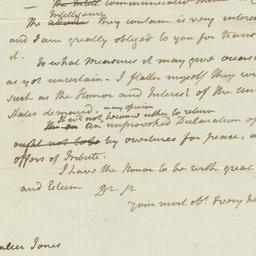 communicative
Intelligence
The they contain is very interes
and I am greatly obliged to you for trans
it.
To what measures it may give occasi
as yet uncertain - I flatter myself they wi
such as the Honor and Interest of the Un
States demand. in my opinion
It will not become either to return
an unprovoked Declaration of
by overtures for peace, a
offers of Tribute.
I have the Honor to be with great
and Esteem Dr Sr
your most obt & very h
Jones